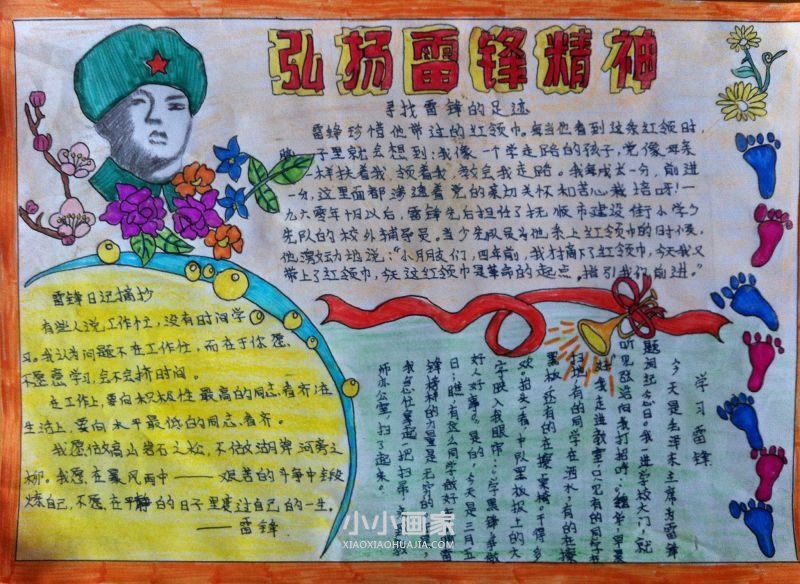 弘扬雷锋精神
寻找雷锋的足迹
雷锋珍惜他带过的红领巾。每当他看到这条红领巾时
脑子里就会想到:我像一个学走路的孩子,党像母亲
一样扶着我,领着我,教会我走路。我每成长一分,前进
一分,这里面都渗透着党的亲切关怀和苦心栽培呀!一
九六零年10月以后,雷锋先后担任了抚顺市建设街小学少
先队的校外辅导员。当少先队员为他系上红领巾的时候,
他激动地说:“小朋友们,四年前,我才摘下了红领巾,今天我又
带上了红领巾,今天这红领巾是革命的起点。指引我们前进。”
雷锋日记摘抄
有些人说工作忙,没有时间学
习。我认为问题不在工作忙,而在于你愿
不愿意学习,会不会挤时间。
在工作上,要向积极性最高的同志看齐;在
生活上,要向水平最低的同志看齐。
我愿做高山岩石之松,不做湖岸河旁之
柳。我愿在暴风雨中——艰苦的斗争中锻
炼自己,不愿在平静的日子里度过自己的一生。
——雷锋
学习雷锋
今天是毛泽东主席为雷锋
题词纪念日。我一进学校大门,就
好!我走进教室,只见有的同学在
扫地,有的同学在洒水,有的在擦
黑板,还有的在擦桌椅。干得多
欢。抬头一看,中队黑板报上的大
字映入我眼帘:
好人好事。是的,今天是三月五
日;瞧,有这么同学做好
锋榜样的力量是无穷的
我急忙拿起一把扫帚,
师办公室,扫了起来。
小小画家
XIAOXIAOHUAJIA.COM